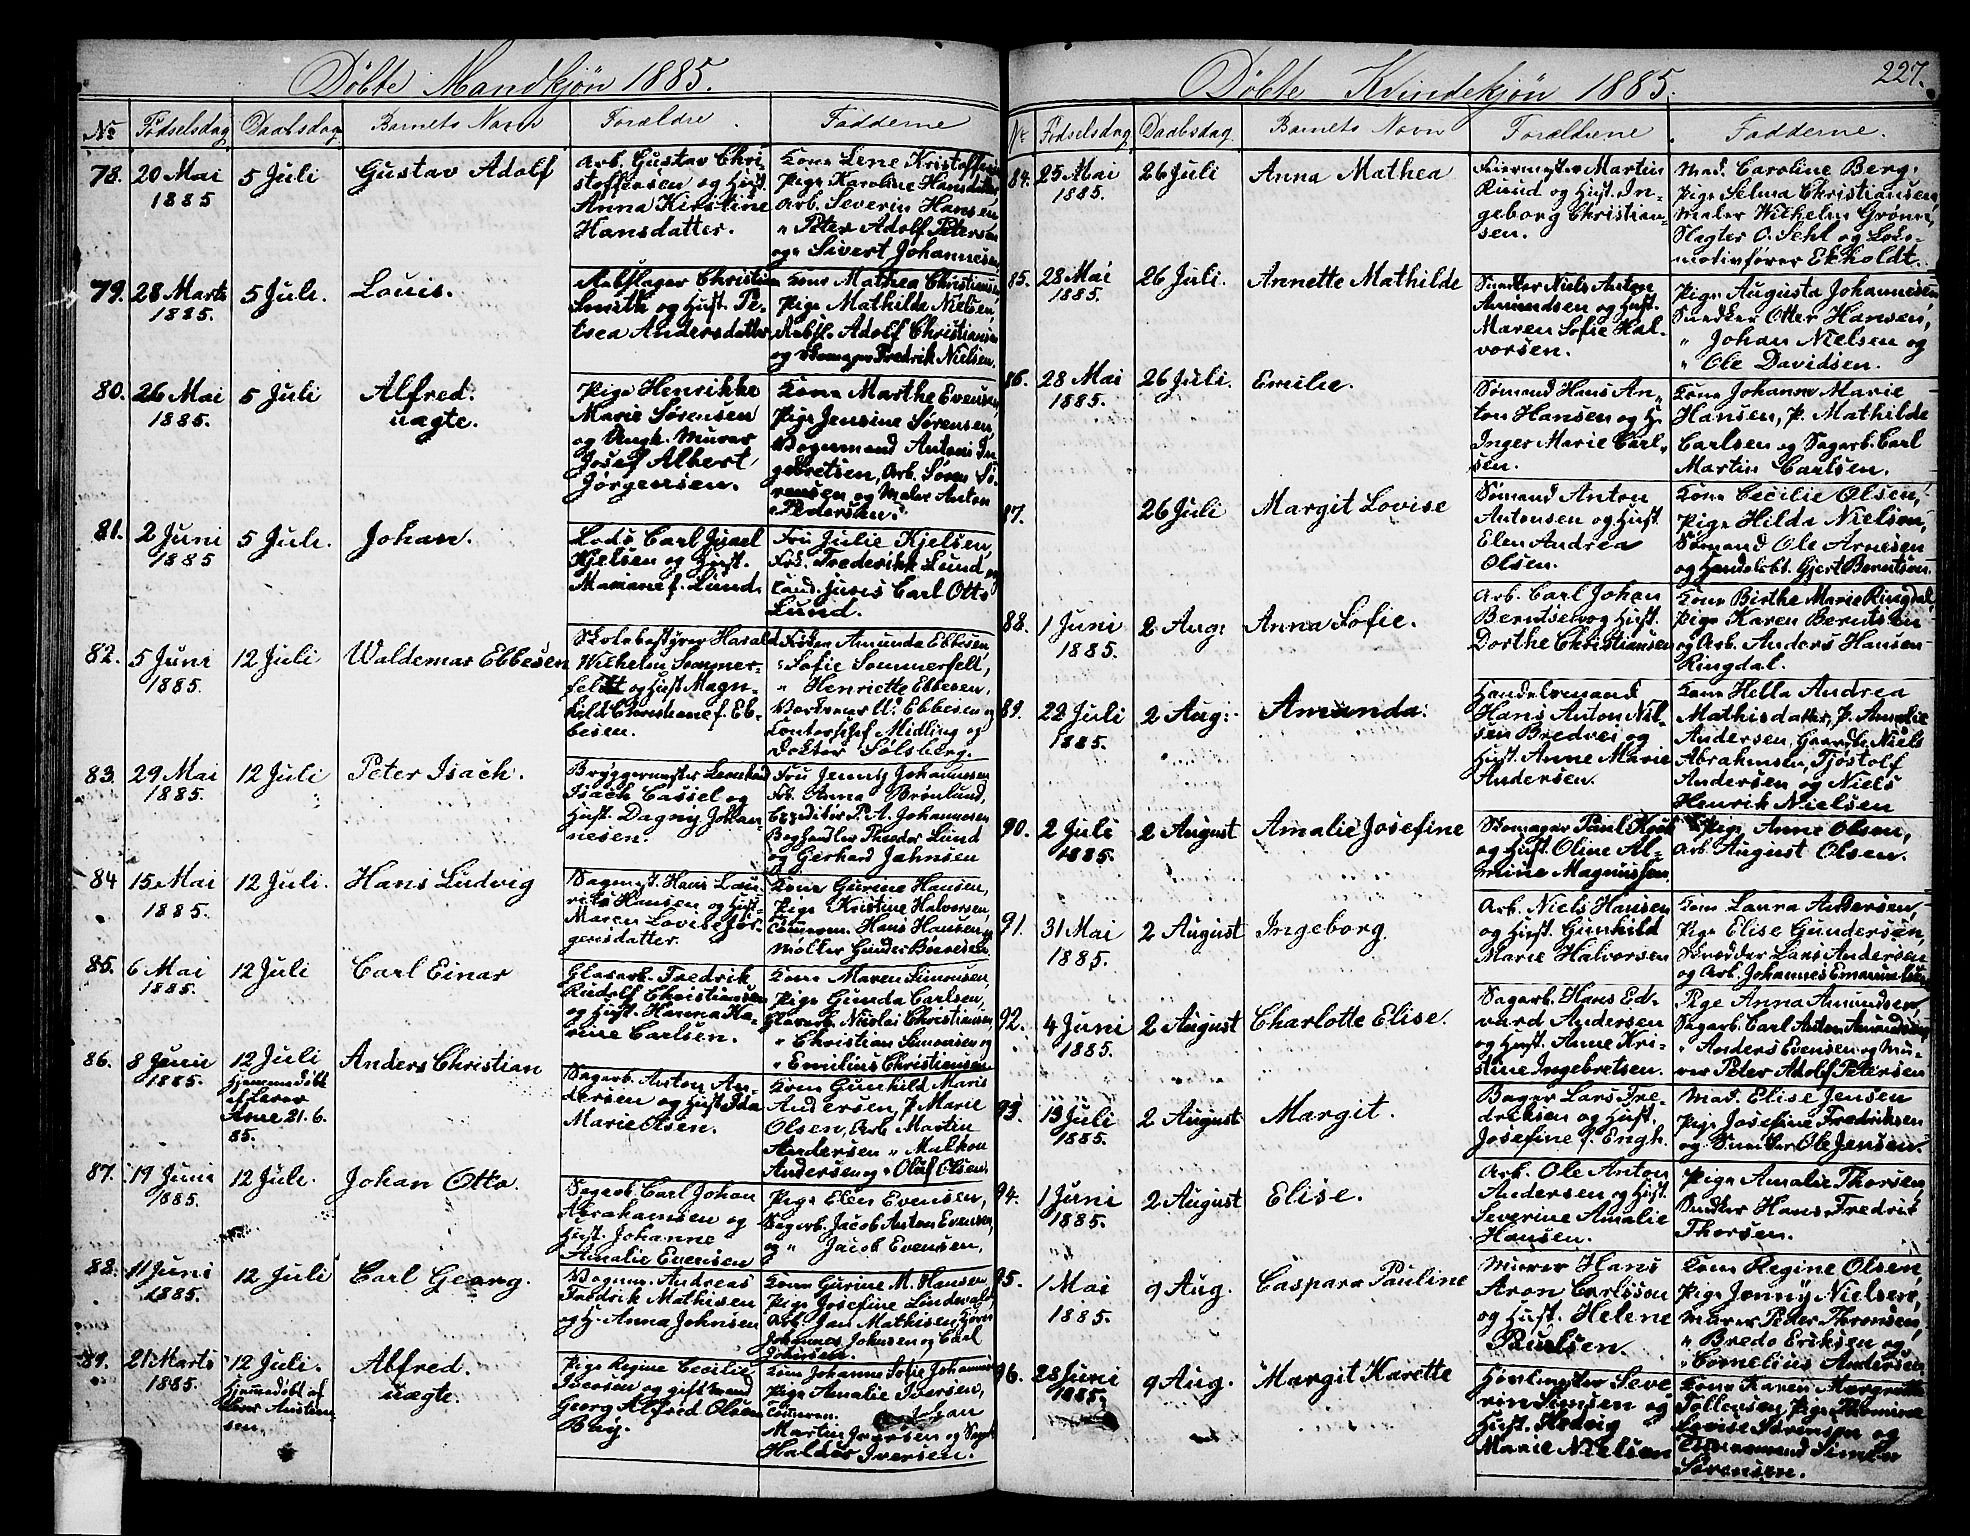 Døbte Mandkjøn 1885.
No Fødselsdag Daabsdag Barnets Navn Forældre Fadderne
78. 20 Mai 1885 5 Juli Gustav Adolf
Arb. Gustav Chri-
stoffersen og Hust.
Anna Kirstine
Hansdatter.
Kone Lene Kristoffersen
Pige Karoline Hansdatter
Arb. Severin Hansen,
" Peter Adolf Petersen
og " Sivert Johannesen
79. 28 Marts 1885. 5 Juli. Louis.
Christian
Smith og Hust. Pe-
trea Andersdatter
Kone Mathea Christiansen,
Pige Mathilde Nielsen,
Adolf Christiansen
og Skomager Fredrik Nielsen.
80. 26 Mai 1885. 5 Juli Alfred.
uægte.
Pige Henrikke
Marie Sørensen
og Ungk. Murer
Josef Albert
Jørgensen.
Kone Marthe Evensen,
Pige Jensine Sørensen,
Vognmand Antoni In-
gebretsen, Arb. Søren Sø-
rensen og Maler Anton
Pedersen.
81. 2 Juni 1885 5 Juli. Johan.
Lods Carl Israel
Kjelsen og Hust.
Mariane f. Lund.
Fru Julie Kjelsen,
Frk. Frederikke Lund og
Cand. juris Carl Otto
Lund.
82. 5 Juni 1885. 12 Juli Waldemar Ebbesen
Skolebestyrer Harald
Wilhelm Sommer-
feldt og Hust. Magn-
hild Christiane f. Eb-
besen.
Frøken Amunda Ebbesen
" Sofie Sommerfelt,
" Henriette Ebbesen,
Ebbesen og
Kontorchef Midling og
Doktor Solsberg.
83. 29 Mai 1885. 12 Juli Peter Isach.
Bryggermester Leonhard
Isach Cassel og
Hust. Dagny Johan-
nesen.
Fru Jenny Johannesen
Frk. Anna Brønlund,
Expeditør P. A. Johannesen
Boghandler Theodor Lund
og Gerhard Jahnsen
84 15 Mai 1885. 12 Juli. Hans Ludvig
Sagmest. Hans Lau-
rits Hansen og Hust.
Maren Lovise Jør-
gensdatter.
Kone Gurine Hansen,
Pige Kristine Halvorsen,
Tømmerm. Hans Hansen og
Møller Gunder Børresen.
85. 6 Mai 1885. 12 Juli Carl Einar
Glasarb. Fredrik
Rudolf Christiansen
og Hust. Hanna Ka-
rine Carlsen.
Kone Maren Simonsen,
Pige Gunda Carlsen,
Glasarb. Nicolai Christiansen
" Christian Simonsen og
" Emilius Christiansen
86. 8 Juni 1885. 12 Juli Anders Christian
Hjemmedøbt
af Lærer
21.6.
85.
Sagarb. Anton An-
dersen og Hust. Ida
Marie Olsen.
Kone Gunhild Marie
Andersen, P. Marie
Olsen, Arb. Martin
Andersen
Andersen og " Olaf Olsen.
87. 19 Juni 1885. 12 Juli. Johan Otto.
Sagarb. Carl Johan
Abrahamsen og
Hust. Johanne
Amalie Evensen
Pige Elen Evensen,
Sagarb. Jacob Anton Evensen,
og " Jacob Evensen,
88. 11 Juni 1885. 12 Juli Carl Georg.
Vognm. Andreas
Fredrik Mathisen
og H. Anna Johnsen
Kone Gurine M. Hansen
Pige Josefine Lindevald,
Arb. Jan Mathisen
Johannes Johnsen og Carl
Johnsen.
89. 21 Marts 1885. 12 Juli. Alfred.
uægte.
Hjemmedøbt af
Pige Regine Cecilie
Iversen og gift mand
Georg Alfred Olsen
Bay.
Kone Johanne Sofie Johannesen
Pige Amalie Iversen,
Tømmerm. Johan
Martin Iversen og
Haldor Iversen.
Døbte Kvindekjøn 1885.
227.
No Fødselsdag Daabsdag Barnets Navn Forældrene Fadderne.
84. 25 Mai 1885. 26 Juli Anna Mathea
Feiermester Martin
Ruud og Hust. In-
geborg Christian-
sen.
Mad. Caroline Berg,
Pige Selma Christiansen,
Maler Wilhelm Grønn,
Slagter O. Sehl og Loko-
motivfører Ekholdt.
85. 28 Mai 1885. 26 Juli. Annette Mathilde
Snedker Niels Anton
Amundsen og Hust.
Maren Sofie Hal-
vorsen.
Pige Augusta Johannesen
Snedker Otter Hansen,
" Johan Nielsen og
" Ole Davidsen.
86. 28 Mai 1885. 26 Juli. Emilie.
Sømand Hans An-
ton Hansen og H.
Inger Marie Carl-
sen.
Kone Johanne Marie
Hansen, P. Mathilde
Carlsen og Sagarb. Carl
Martin Carlsen.
87. 26 Juli Margit Lovise
Sømand Anton
Antonsen og Hust.
Elen Andrea
Olsen.
Kone Cecilie Olsen,
Pige Hilda Nielsen,
Sømand Ole Arnesen
og Handelsbt. Gjert Berntsen.
88. 1 Juni 1885. 2 Aug: Anna Sofie.
Arb. Carl Johan
Berntsen og Hust.
Dorthe Christiansen
Kone Birthe Marie Ringdal,
Pige Karen Berntsen
og Arb. Anders Hansen
Ringdal.
89. 22 Juli 1885. 2 Aug: Amanda.
Handelsmand
Hans Anton Niel-
sen Bredvei og
Hust. Anne Marie
Andersen.
Kone Hella Andrea
Mathisdatter, P. Amalie
Andersen, Gaardb. Niels
Abrahmsen, Tjøstolf
Andersen og Niels
Henrik Nielsen
90. 2 Juli 1885. 2 August Amalie Josefine
Skomager Paul Hook
og Hust. Oline Al-
mine Magnussen
Pige Anne Olsen,
Arb. August Olsen.
91. 31 Mai 1885. 2 August Ingeborg
Arb. Niels Hansen
og Hust. Gunhild
Marie Halvorsen
Kone Laura Andersen,
Pige Elise Gundersen,
Skrædder Lars Andersen
og Arb. Johannes Emanuelsen
92. 4 Juni 1885. 2 August Charlotte Elise.
Sagarb. Hans Ed-
vard Andersen
og Hust. Anne Kri-
stine Ingebretsen.
Pige Anna Amundsen,
Sagarb. Carl Anton Amundsen,
" Anders Evensen og Mu-
rer Peter Adolf Petersen
93. 13 Juli 1885. 2 August Margit.
Bager Lars Fre-
driksen og Hust.
Josefine f. Engh.
Mad. Elise Jensen
Pige Josefine Fredriksen
og Snedker Ole Jensen.
94. 1 Juni 1885. 2 August Elise.
Arb. Ole Anton
Andersen og Hust.
Severine Amalie
Hansen.
Pige Amalie Thorsen,
Snedker Hans Fredrik
Thorsen.
95. 1 Mai 1885. 9 Aug. Caspara Pauline
Murer Hans
Aron Carlsson
og Hust. Helene
Paulsen.
Kone Regine Olsen,
Pige Jenny Nielsen,
Murer Peder Thronsen,
" Bredo Eriksen og
" Cornelius Andersen
96. 28 Juni 1885. 9 Aug. Margit Karette
Høvlmester Seve-
rin Simsen og
Hust. Hedvig
Marie Nielsen
Kone Karen Margrethe
Tollefsen, Pige Thomine
Lovise Sørensen og
Tømmermand Simon
Sørensen.